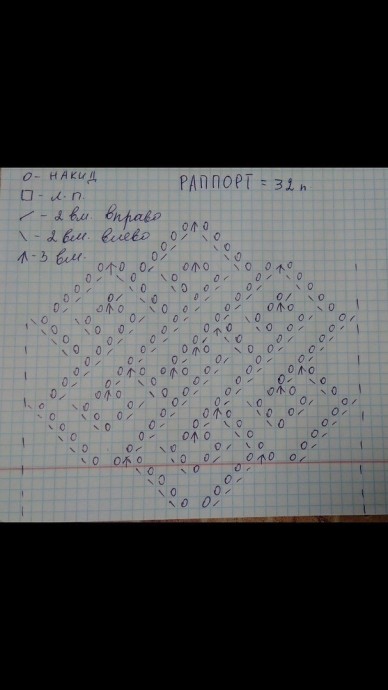 O - НАКИД
РАППОРТ = 32 п
□ - л.п.
/ - 2 вм. вправо
\ - 2 вм. влево
↑ - 3 вм.